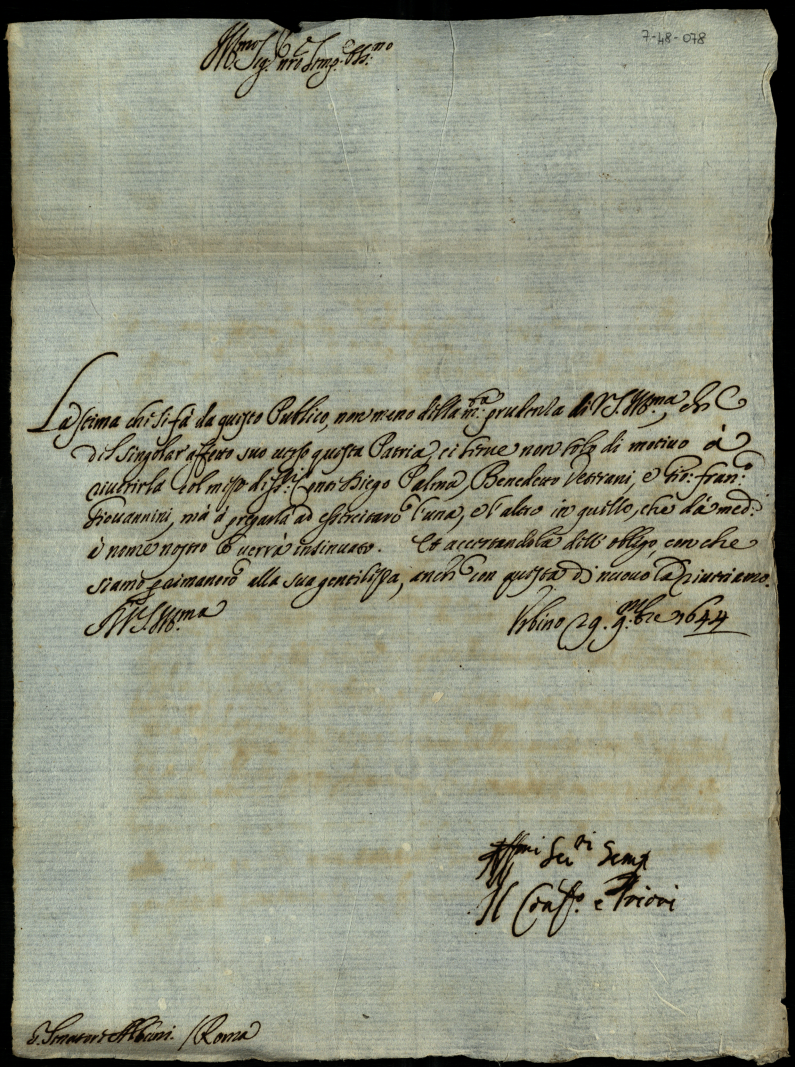 7-48-078
Ill.mo Sig.r n.ro Sing.e Oss.mo
La stima che si fà da questo Publico, non meno della m.ta prudenza di V.S. Ill.ma, che
del singolar affetto suo verso questa Patria, ci serve non solo di motivo à
riverirla col mezo di Diego Palma, Benedetto Veterani, e Gio: Fran.co
Giovannini, mà à pregarla ad essercitare l'una, e l'altro in quello, che da med.i
à nome nostro le verrà insinuato. Et accertandola dell'obligo, con che
siamo p rimanere alla sua gentilezza, anche con questa di nuovo la riveriamo.
Di V.S. Ill.ma Urbino 29. 9.mbre 1644
Aff.mi Ser.ri Semp.
Il Conf.re e Priori
S. Senatore Albani. / Roma